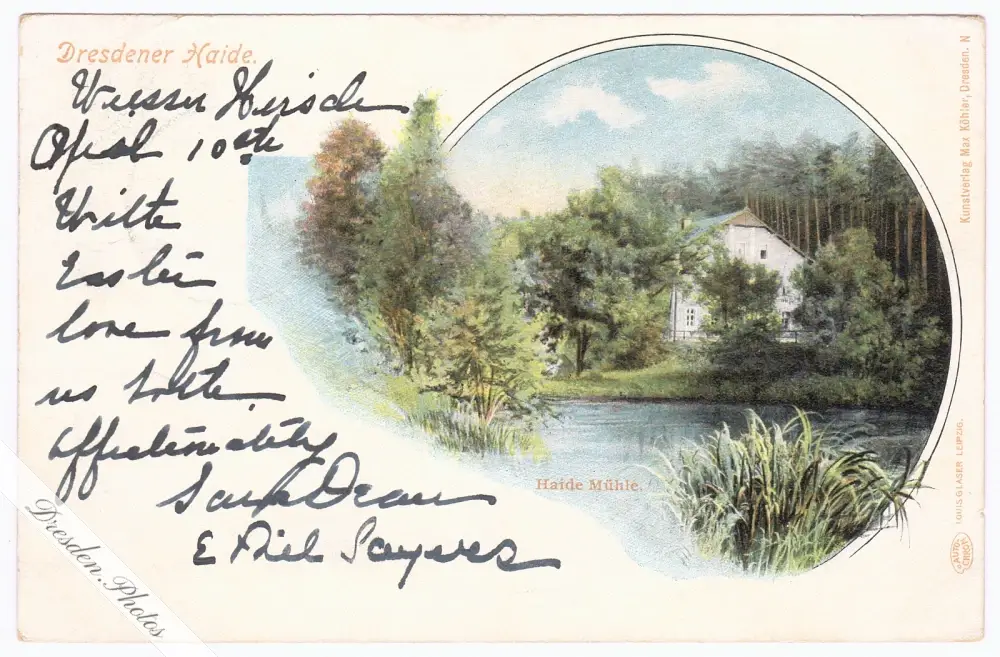 Dresdener Haide.
Weisser Hirsch
April 10th
With
Easter
love from
us both
affectionately
Sara Dean
Sayers
Haide Mühle.
Kunstverlag Max Köhler, Dresden. N
LOUIS GLASER LEIPZIG.
Dresden.Photos